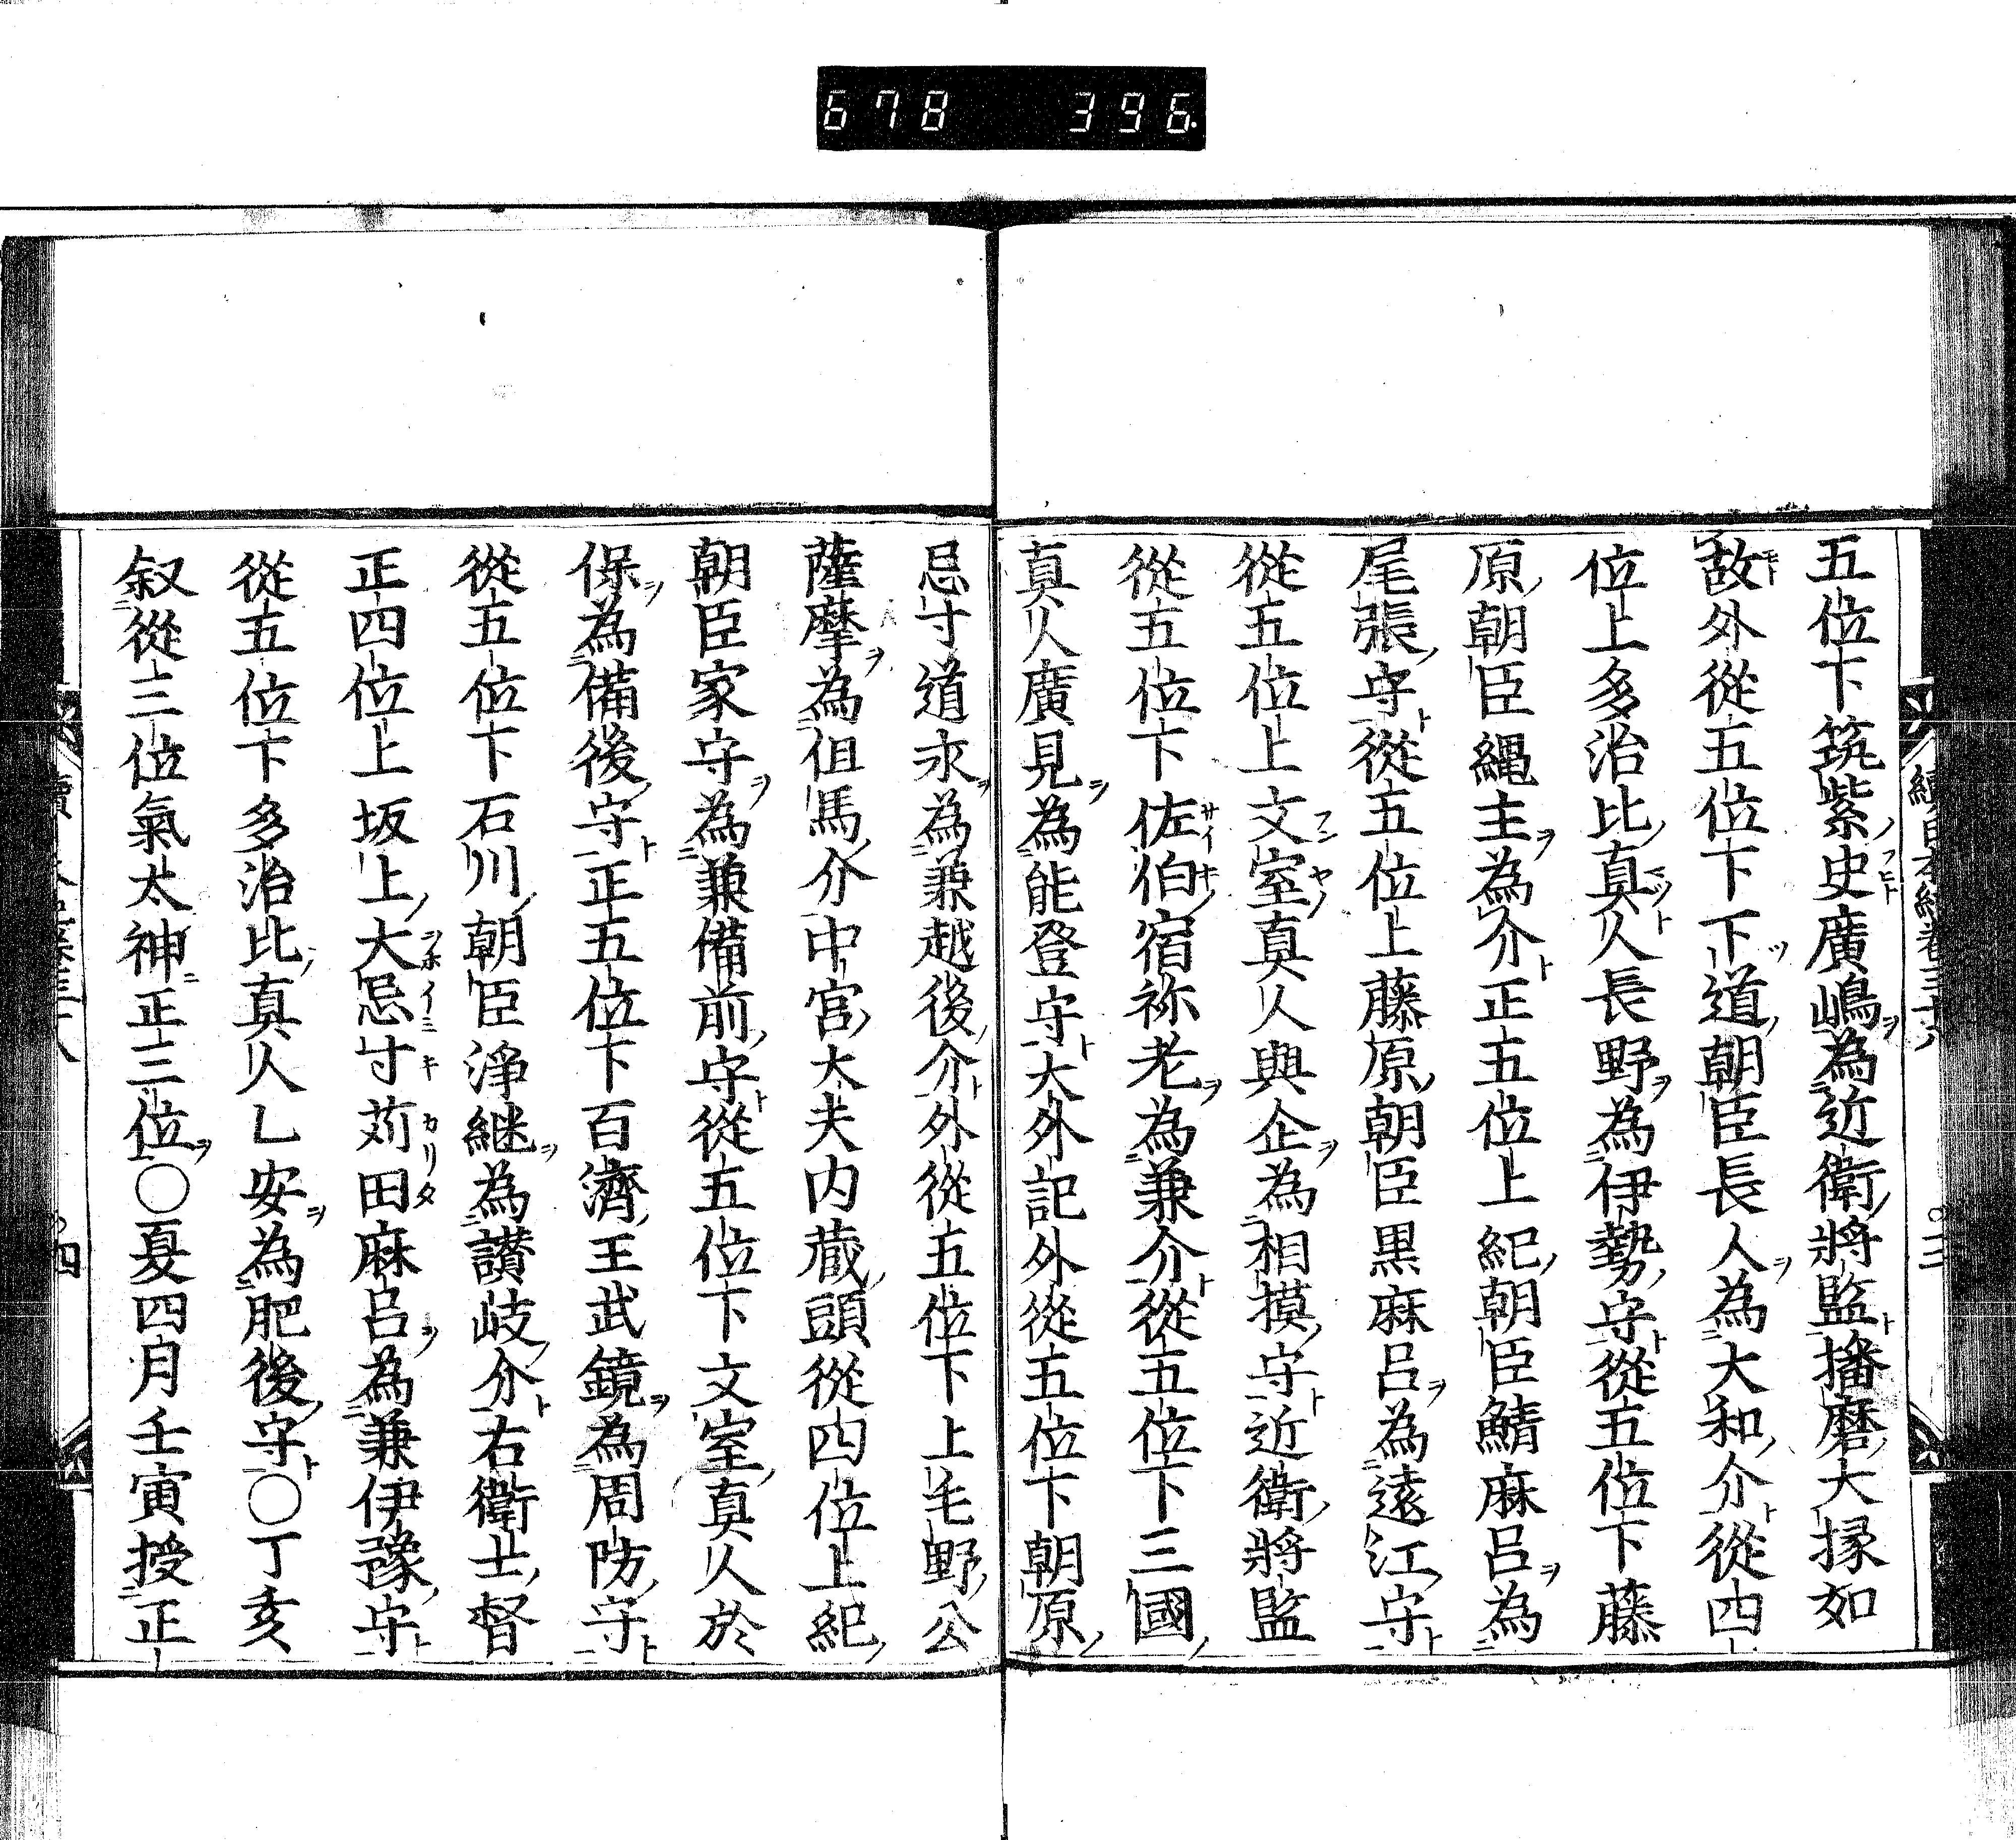 678 396
五位下筑紫史廣嶋為近衛將監播磨大掾如
故外從五位下下道朝臣長人為大和介從四
位上多治比真人長野為伊勢守從五位下藤
原朝臣縄主為介正五位上紀朝臣鯖麻呂為
尾張守從五位上藤原朝臣黒麻呂為遠江守
從五位上文室真人與企為相摸守近衛將監
從五位下佐伯宿祢老為兼介從五位下三國
真人廣見為能登守大外記外從五位下朝原
忌寸道永為兼越後介外從五位下上毛野公
薩摩為但馬介中宮大夫内蔵頭從四位上紀
朝臣家守為兼備前守從五位下文室真人於
保為備後守正五位下百濟王武鏡為周防守
從五位下石川朝臣淨継為讃岐介右衛士督
正四位上坂上大忌寸苅田麻呂為兼伊豫守
從五位下多治比真人乙安為肥後守〇丁亥
叙從三位氣太神正三位〇夏四月壬寅授正